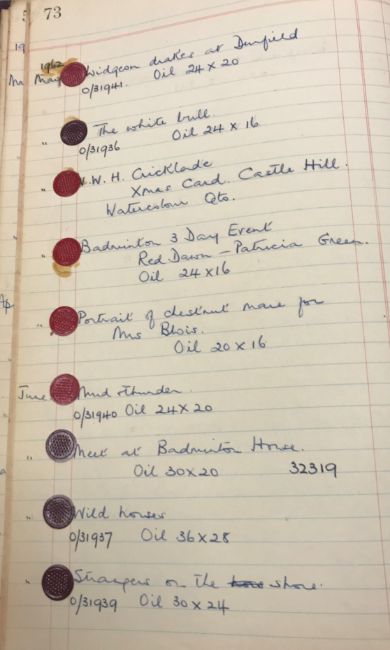 73
1962
May Widgeon drakes at Dunfield
0/31941. Oil 24 x 20
" The white bull.
0/31936 Oil 24 x 16
" V.W.H. Cricklade
Xmas Card. Castle Hill.
Watercolour Qto.
" Badminton 3 Day Event
Red Dawn - Patricia Green.
Oil 24 x 16
" Portrait of chestnut mare for
Mrs Blois.
Oil 20 x 16
June Mud & thunder
0/31940 Oil 24 x 20
" Meet at Badminton House.
Oil 30 x 20 32319
" Wild horses
0/31937 Oil 36 x 28
" Strangers on the shore.
0/31939 Oil 30 x 24